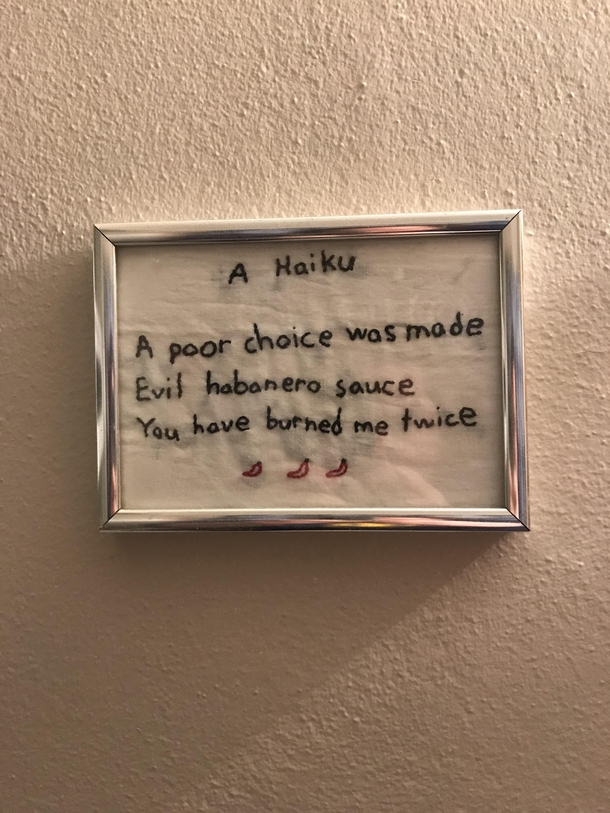 A Haiku
A poor choice was made
Evil habanero sauce
You have burned me twice